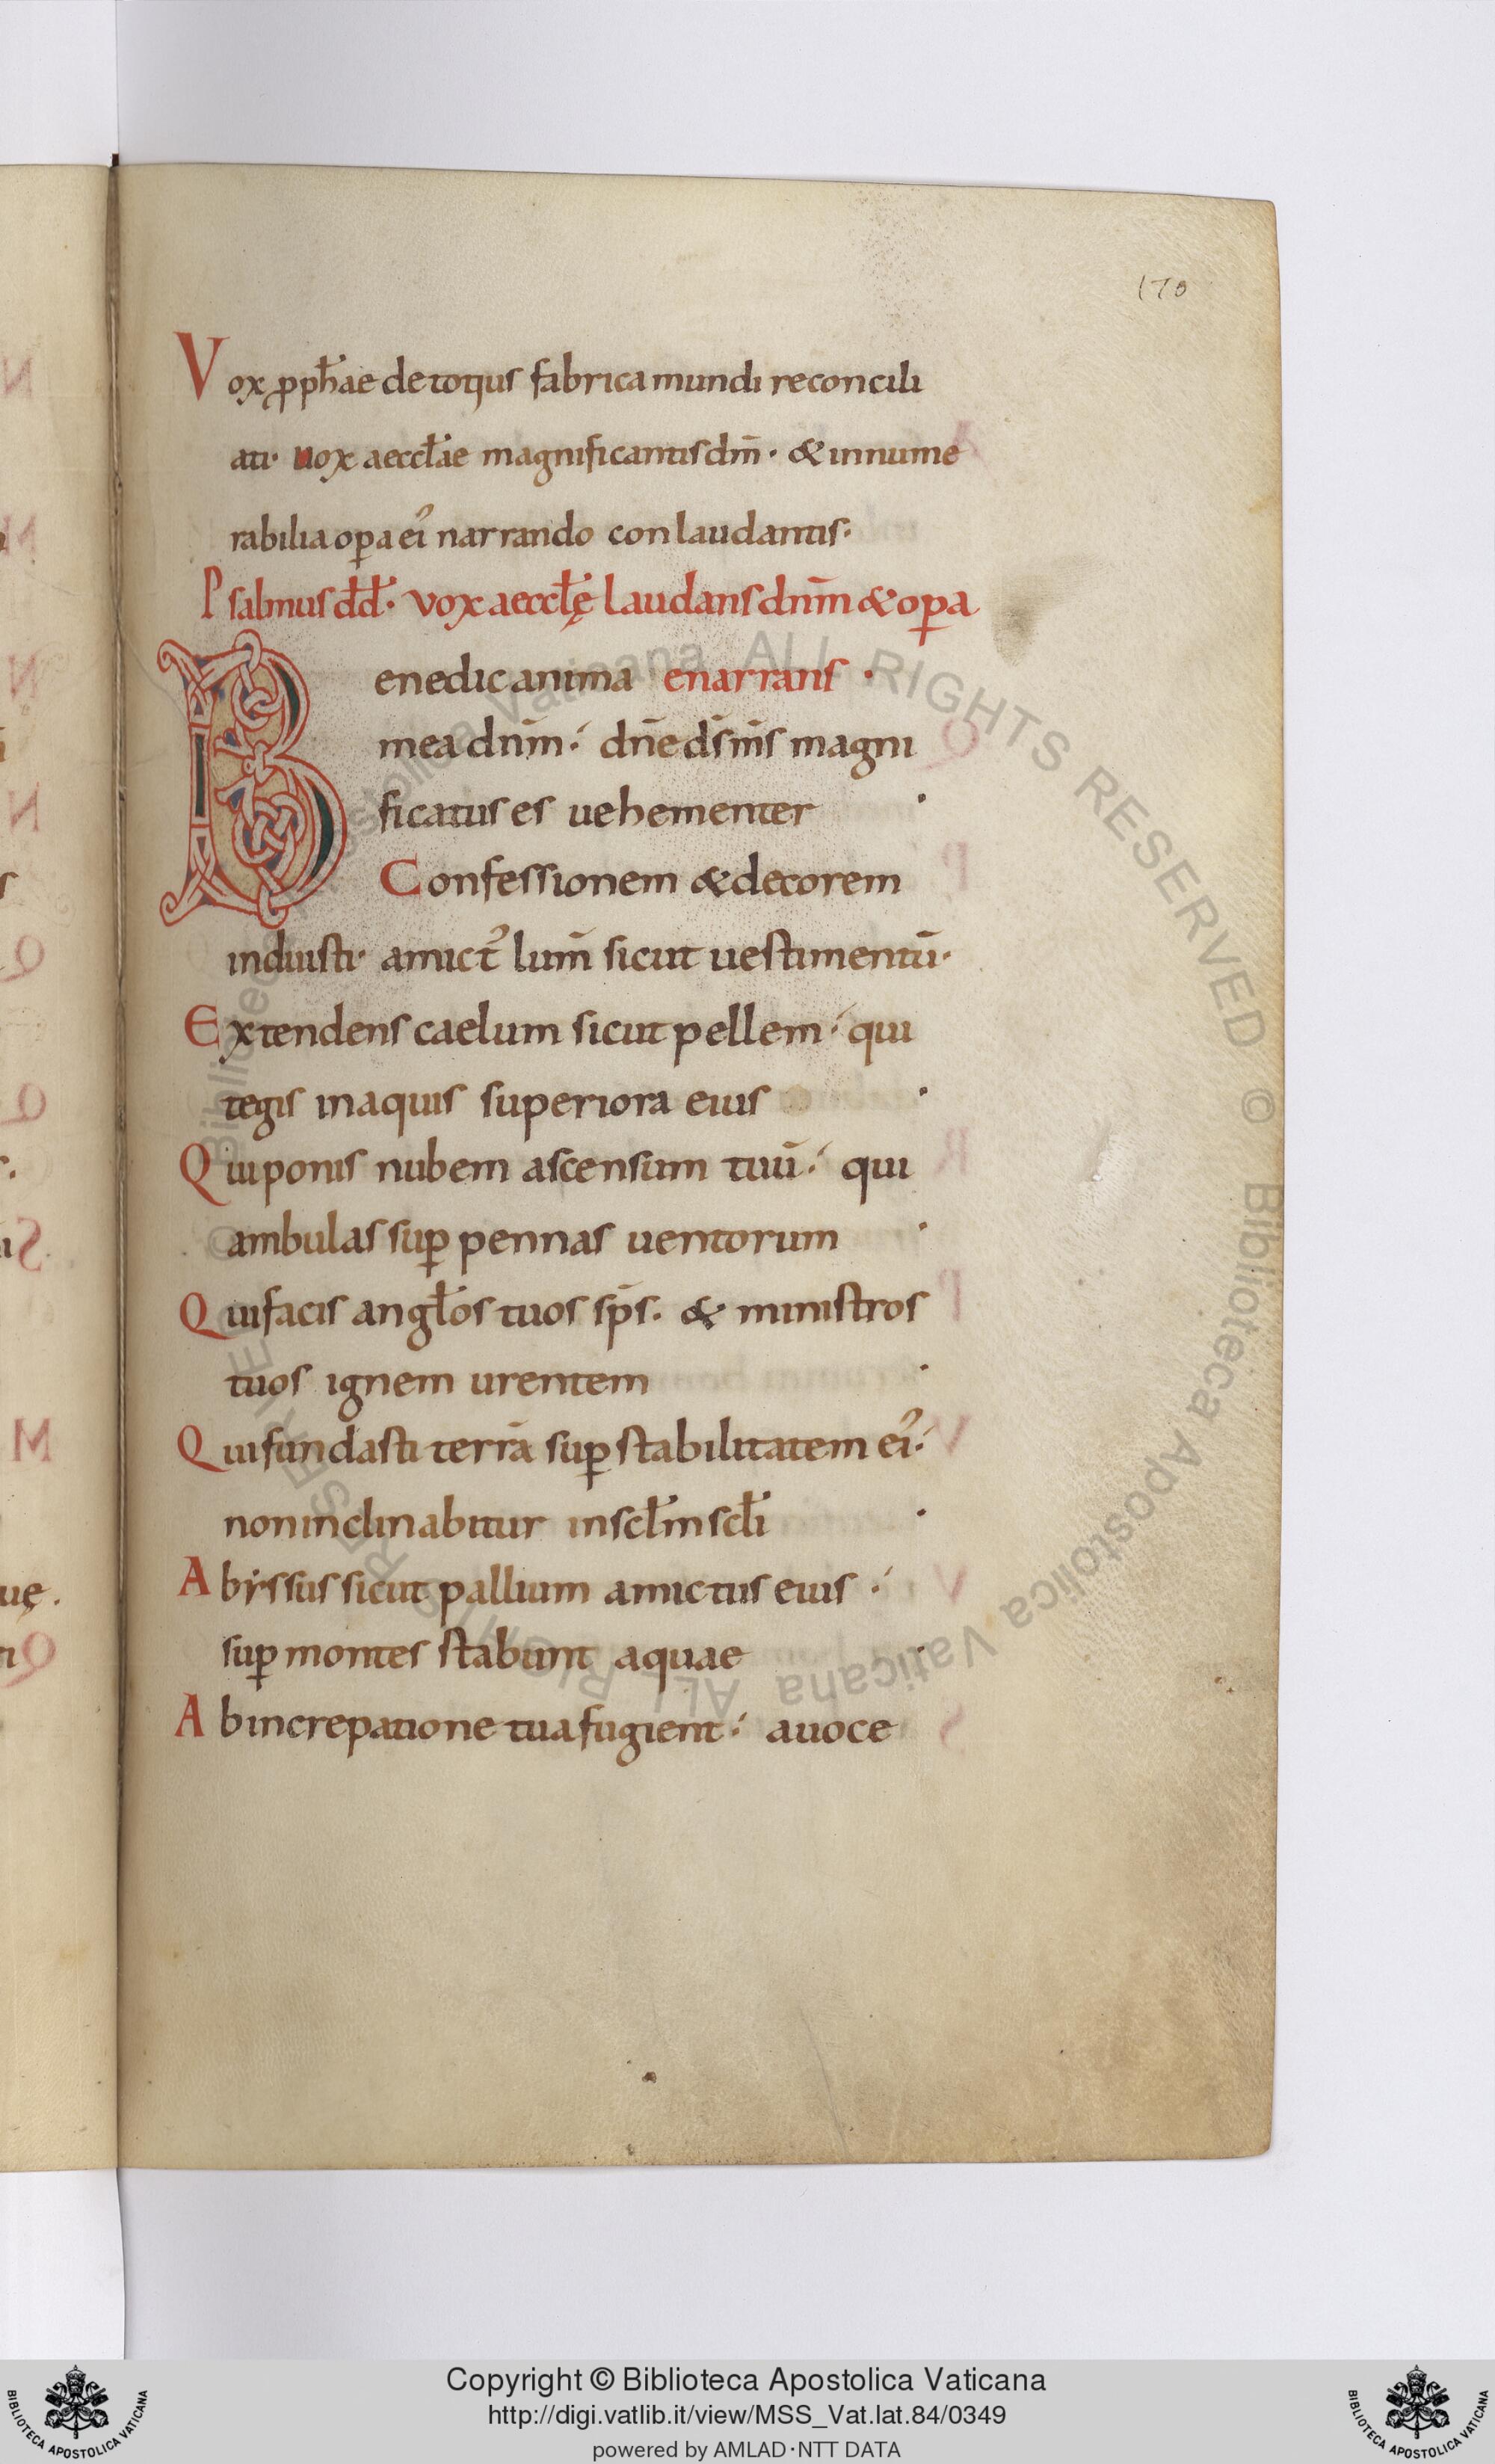 170
Vox ꝓph̄ae de totius fabrica mundi reconcili
ati· uox aeccl̄ae magnificantis dm̄· & innume
rabilia oꝑa ei᾿ narrando conlaudantis·
Psalmus dd̄· vox aeccl̄ę laudans dnm̄ & oꝑa
Benedic anima enarrans ·
mea dnm̄·́ dn̄e ds̄ ms̄ magni
ficatus es uehementer ·
Confessionem & decorem
induisti· amict᾿ lum̄ sicut uestimentū·
Extendens caelum sicut pellem·́ qui
tegis in aquis superiora eius ·
Qui ponis nubem ascensum tuū·́ qui
ambulas suꝑ pennas uentorum ·
Qui facis angl̄os tuos sp̄s· & ministros
tuos ignem urentem ·
Qui fundasti terrā suꝑ stabilitatem ei᾿·́
non inclinabitur in scl̄m scl̄i ·
Abyssus sicut pallium amictus eius ·́
suꝑ montes stabunt aquae ·
Ab increpatione tua fugient·́ a uoce
© Biblioteca Apostolica Vaticana ALL RIGHTS RESERVED © Biblioteca Apostolica Vaticana ALL RIGHTS RESERVED
Copyright © Biblioteca Apostolica Vaticana
http://digi.vatlib.it/view/MSS_Vat.lat.84/0349
powered by AMLAD·NTT DATA
BIBLIOTECA APOSTOLICA VATICANA
BIBLIOTECA APOSTOLICA VATICANA